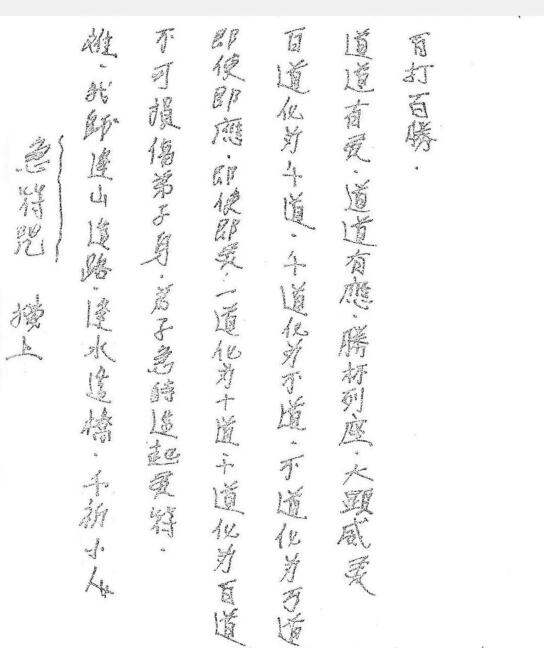 急符咒 上
我師逢山造路.逢水造橋.千祈小人
不可損傷弟子身.君子急時造起灵符.
即使即應.即使即灵.一道化为十道十道化为百道
百道化为千道.千道化为不道.不道化为万道
道道有灵.道道有應.勝杯列座.大顕威灵
百打百勝.